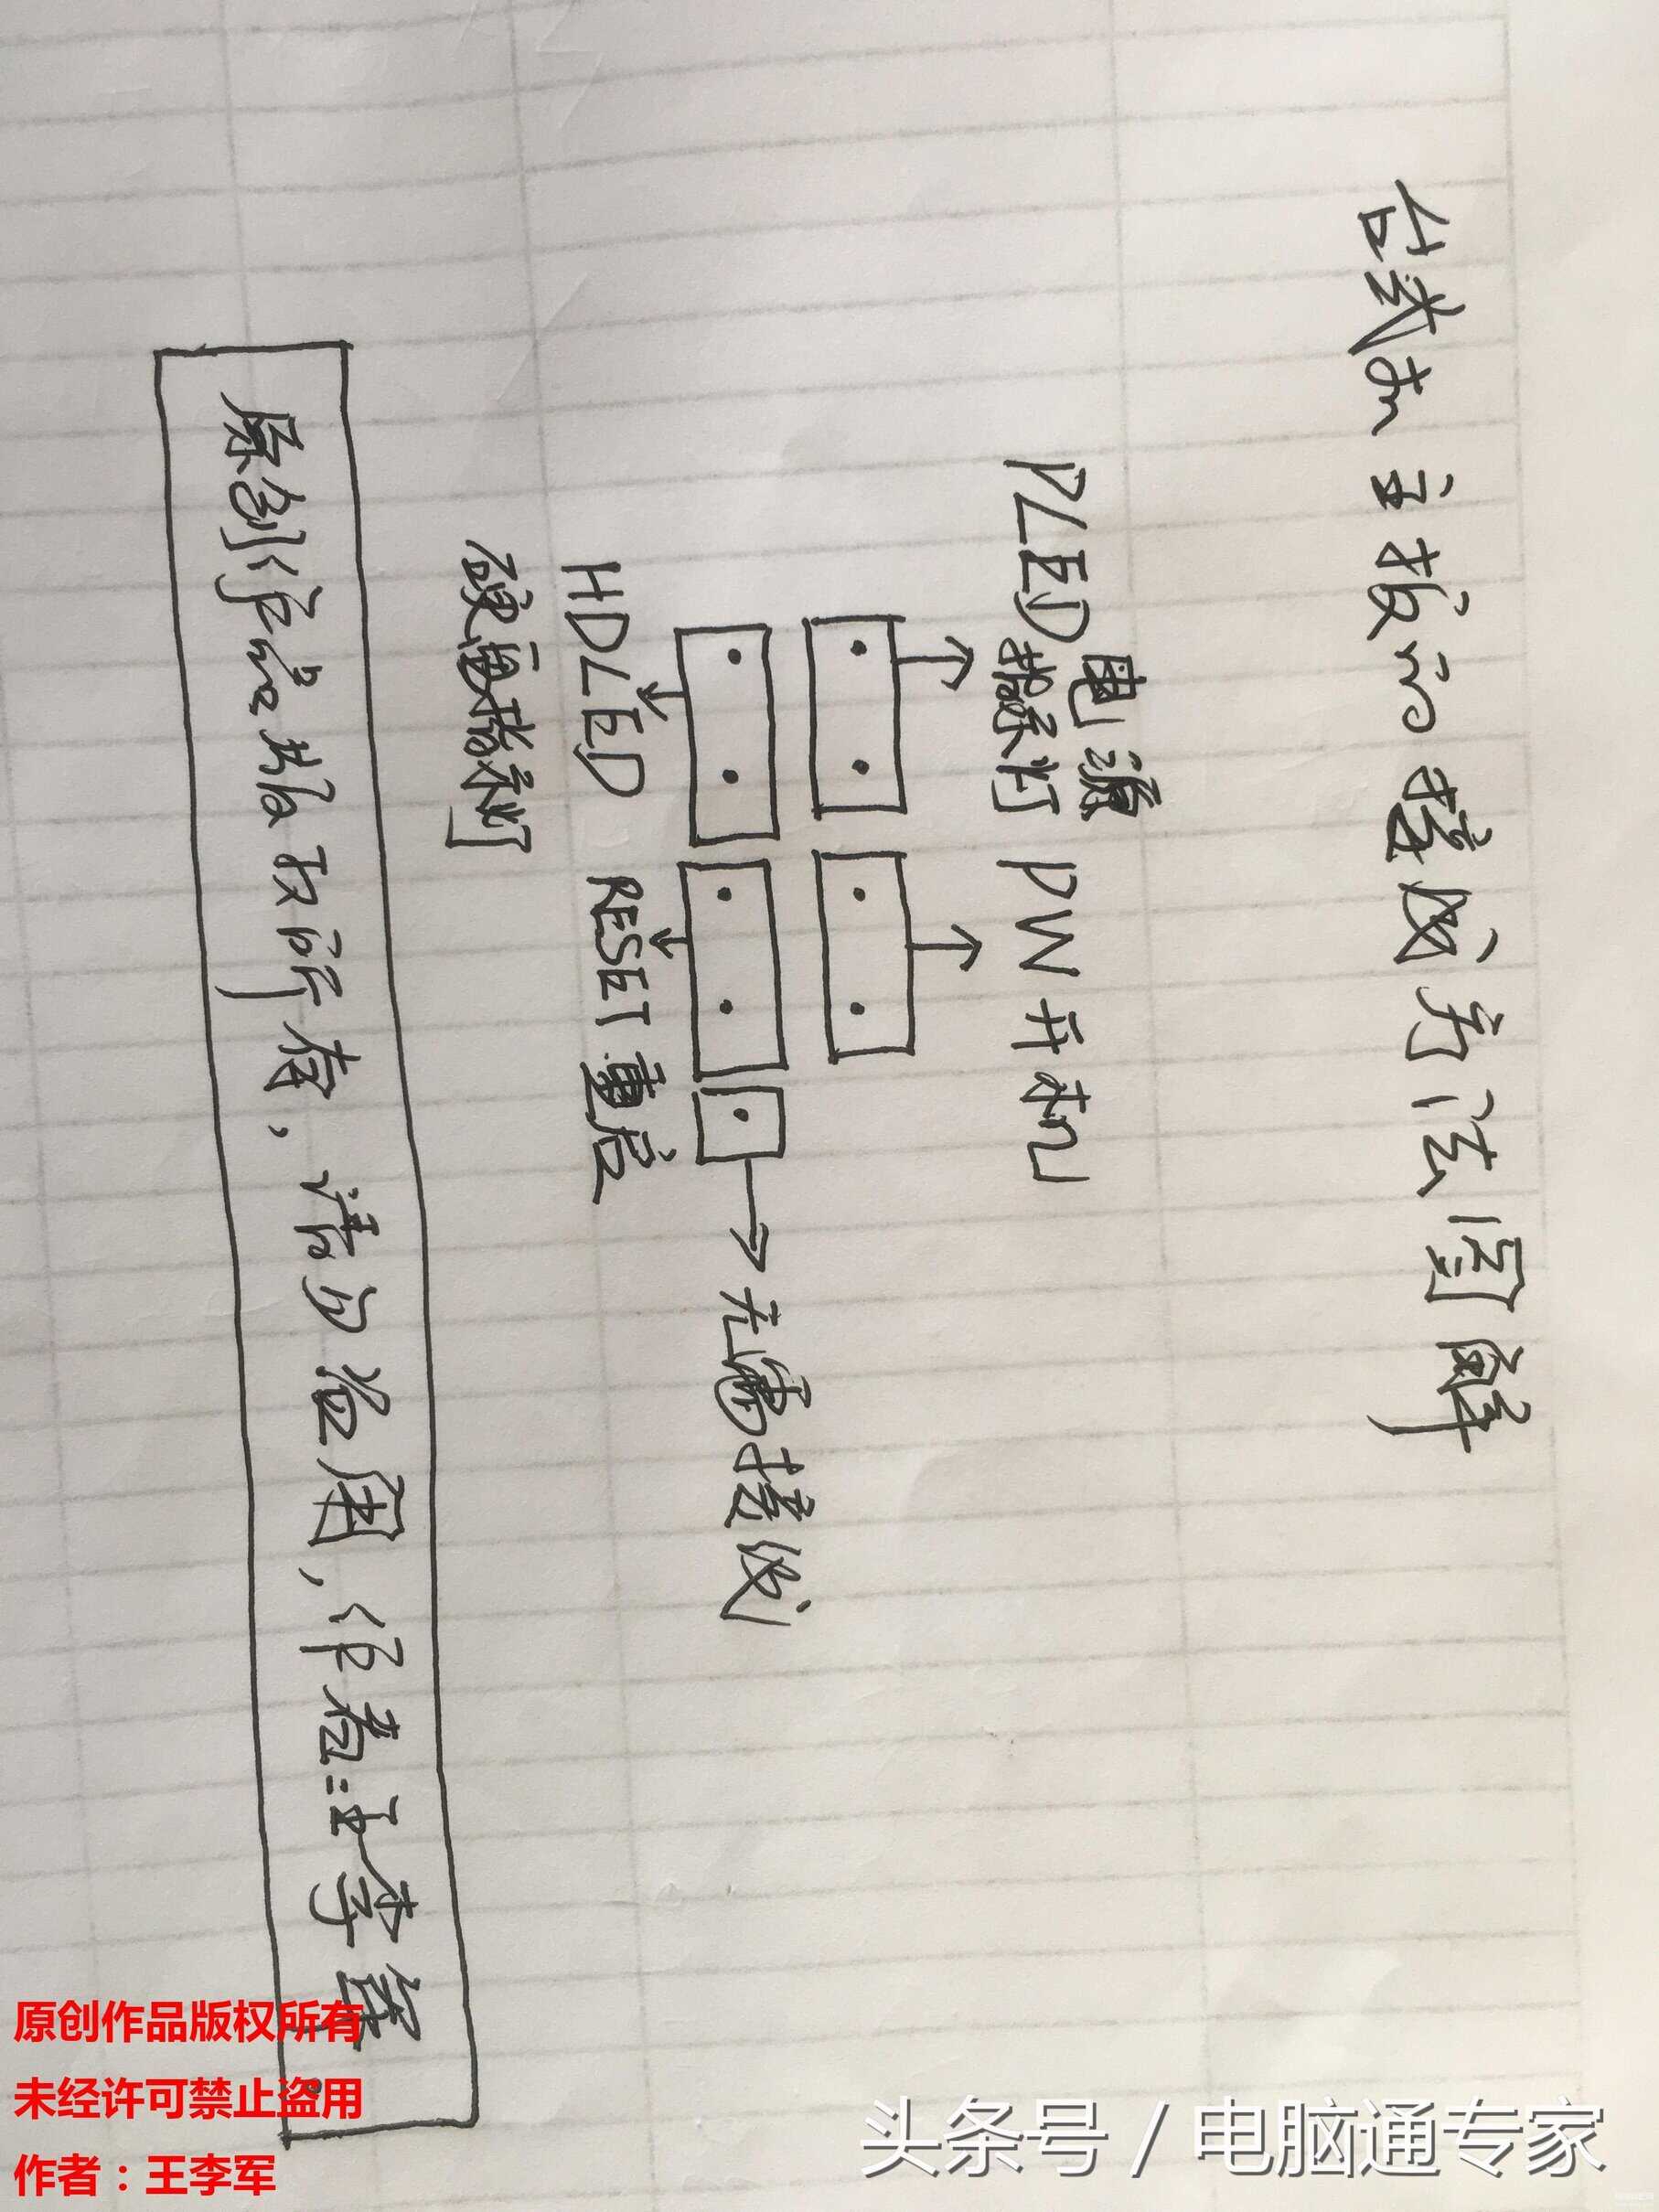 台式机主板的接线方法图解
PLED电源
指示灯
PW开机
HDLED
硬盘指示灯
RESET重启
无需接线
原创作品版权所有,请勿盗用,作者:王李军.
原创作品版权所有
未经许可禁止盗用
作者:王李军
头条号/电脑通专家